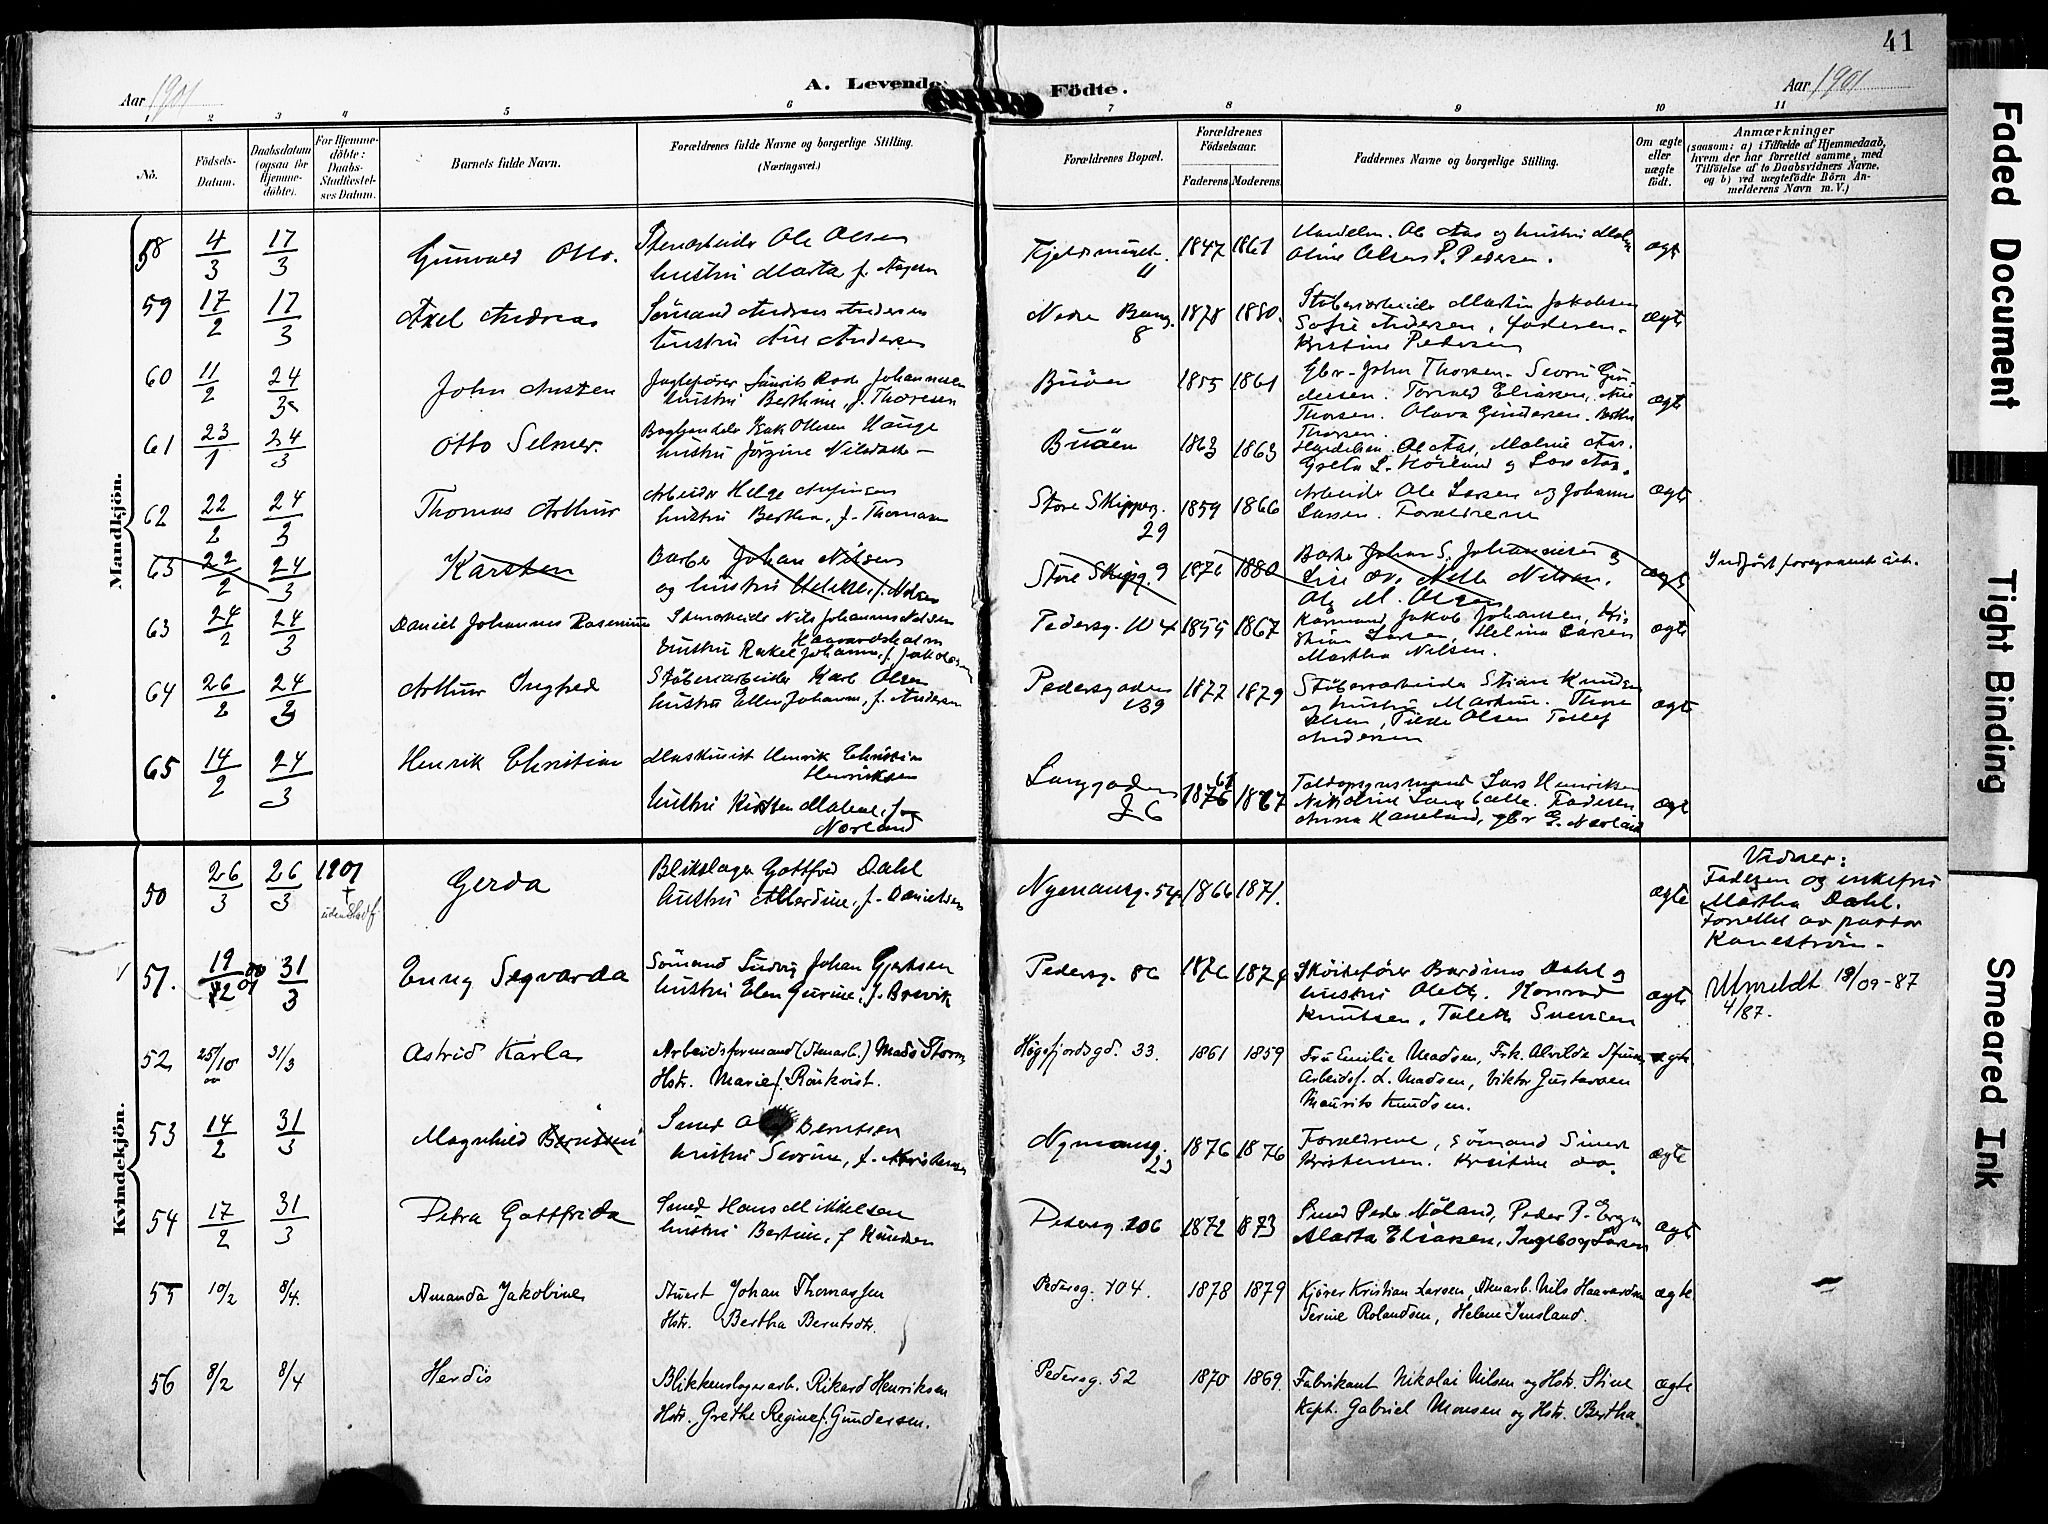 41
Aar 1901
A. Levende
Födte.
Aar 1901
1 2 3 4 5 6 7 8 9 10 11
No.
Födsels-Datum.
Daabsdatum (ogsaa for Hjemme-döbte).
For Hjemme-döbte: Daabs-Stadfæstel-ses Datum.
Barnets fulde Navn.
Forældrenes fulde Navne og borgerlige Stilling.
(Næringsvei.)
Forældrenes Bopæl.
Forældrenes Födselsaar.
Faderens. Moderens.
Faddernes Navne og borgerlige Stilling.
Om ægte eller uægte födt.
Anmærkninger
(saasom: a) i Tilfælde af Hjemmedaab, hvem der har forrettet samme, med Tilföielse af to Daabsvidners Navne, og b) ved uægtefödte Börn An-melderens Navn m. V.)
Mandkjön.
58 4/3 17/3 Gunvald Otto. Stenarbeider Ole Olsen
hustru Marta f.
11 1847 1861 Handelsm. Ole Aas og hustru
Oline Olsen P. Pedersen. ægte
59 17/2 17/3 Axel Andreas Sömand Andreas Andersen
hustru Ane Andersen
Nedre Bang. 8 1878 1880. Stöberiarbeider Martin Jakobsen
Sofie Andersen, faderen.
Kristine Pedersen ægte
60 11/2 24/3 John Austen Jagtefører Laurits Rode Johannesen
hustru Berthine, f. Thorsen
Buöen 1855 1861 Gbr. John Thorsen.
Torvald Eliasen,
Thorsen. Olava Gundersen. Bertha
Thorsen. ægte
61 23/1 24/3 Otto Selmer. Baghandler Isak Olsen Hauge
hustru Jörgine Nilsdatter
Buöen 1863 1863 Handelsm. Ole Aas, Malene Aas.
Greta L. Höiland og Lars Aas. ægte
62 22/2 24/3 Thomas Arthur Arbeider Helge Anfinsen
hustru Bertha, f. Thomasen
Store Skipperg. 29 1859 1866 Arbeider Ole Larsen og Johanne
Larsen. Forældrene
63 22/2 24/3 Karsten Barber Johan Nilsen
og hustru f. Nilsen
Store Skippg. 9 1880 Barber Johan S. Johannesen og
Lise do. Nelle Nilsen.
M. Olsen ægte Indfört foregaaende
63 24/2 24/3 Daniel Johannes Rasmus Stenarbeider Nils Johannes Nilsen
Haavardsholm
hustru Rakel Johanne, f. Jakobsen
Pedersg. 104 1855 1867 Jakob Johansen,
Larsen, Helina Larsen
Martha Nilsen. ægte
64 26/2 24/3 Arthur Ingfred Stöberiarbeider Karl Olsen
hustru Ellen Johanne, f. Andersen
Pedersgaden 139 1877 1879 Stöberiarbeider Stian Knudsen
og hustru Martine.
Olsen Tollef
Andersen ægte
65 14/2 24/3 Henrik Christian Maskinist Henrik Christian
Henriksen
hustru Kirsten Malene, f.
Nærland
Langgaden 26 1876 61 1867 Toldopsynsmand Lars Henriksen
Faderen
Anna Haneland, gbr E. Nærland ægte
Kvindekjön.
50 26/3 26/3 1901 † Gerda Blikslager Gottfred Dahl
hustru Alberdine, f. Danielsen
Nymansg. 54. 1866 1871. ægte Vidner:
Faderen og enkefru
Martha Dahl.
Forrettet av pastor
Kaneström.
51. 19/12 00 31/3 01 Enny Segvarda Sömand Ludvig Johan Gjertsen
hustru Elen Gurine, f. Brevik
Pedersg. 86 1876 1874 Skøitefører Bardinus Dahl og
hustru Oleth. Konrad
Knutsen, Taleth Svensen ægte Utmeldt 18/09-87
4/87.
52. 25/10 00 31/3 Astrid Karla Arbeidsformand (Stenarb.) Mads Storm
Hstr. Marie f. Rönkvist.
Høgsfjordsgd. 33. 1861 1859 Fru Emilie Madsen, Frk. Alvilde
Arbeidsf. L. Madsen, Viktor Gustavsen
Maurits Knudsen. ægte
53 14/2 31/3 Magnhild Berntsen Smed Berntsen
hustru Sevrine, f. Kristensen
Nymansg. 23 1876 1876 Forældrene, sömand Simert
Kristensen. Kristine do. ægte
54 17/2 31/3 Petra Gottfrida Smed Hans Mikkelsen
hustru Bertine, f Knudsen
Pedersg. 106 1872 1873 Smed Peder Nöland, Peder P.
Marta Eliassen, Ingeborg Larsen ægte
55 10/2 8/4. Amanda Jakobine Stuert Johan Thomassen
Hstr. Bertha Berntsdtr.
Pedersg. 104. 1878 1879 Kjører Kristian Larsen, Stenarb. Nils Haavardsen
Serine Rolandsen, Helene Imsland. ægte
56 8/2 8/4 Herdis Blikkenslagerarb. Rikard Henriksen
Hstr. Grethe Regine f. Gundersen.
Pedersg. 52 1870 1869. Fabrikant Nikolai Nilsen og Hstr. Stine
Kapt. Gabriel Monsen og Hstr. Bertha. ægte
Faded Document
Tight Binding
Smeared Ink